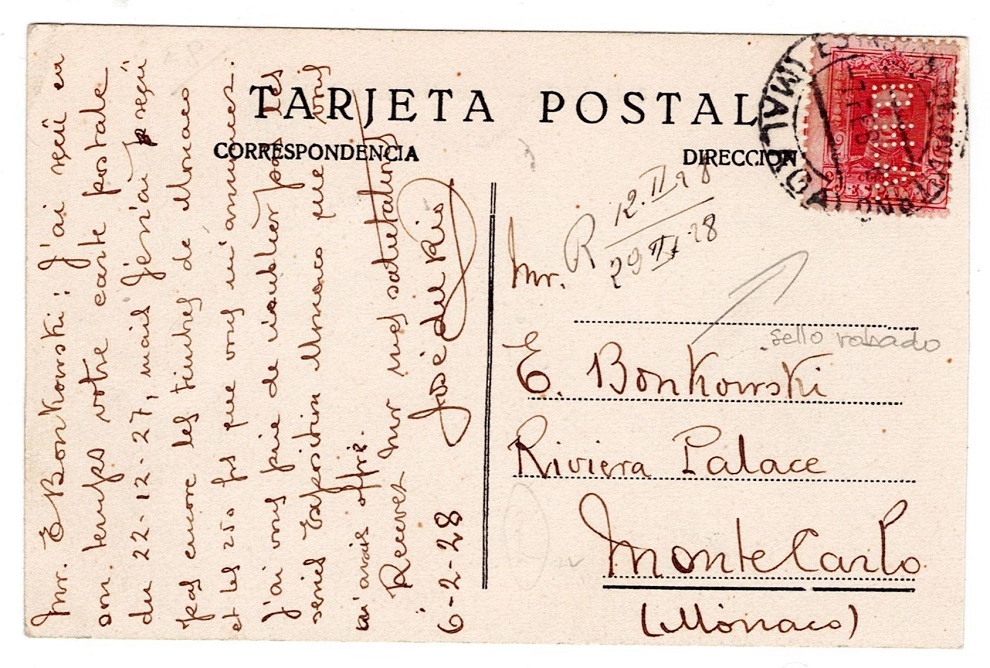 TARJETA POSTAL
CORRESPONDENCIA
DIRECCION
Mr. E Bonkowski: J'ai reçu en
son temps votre carte postale
du 22-12-27, mais je n'ai reçu
pas encore les timbres de Monaco
et les 250 frs que vous m'annoncez.
J'ai vous prie de n'oublier pas les
series Exposition Monaco que vous
m'avais offré.
Recevez Mr mes salutations
José del Rio
6-2-28
R 12.II-28
29 II-28
Mr.
sello robado
E. Bonkowski
Riviera Palace
Monte Carlo
(Mónaco)